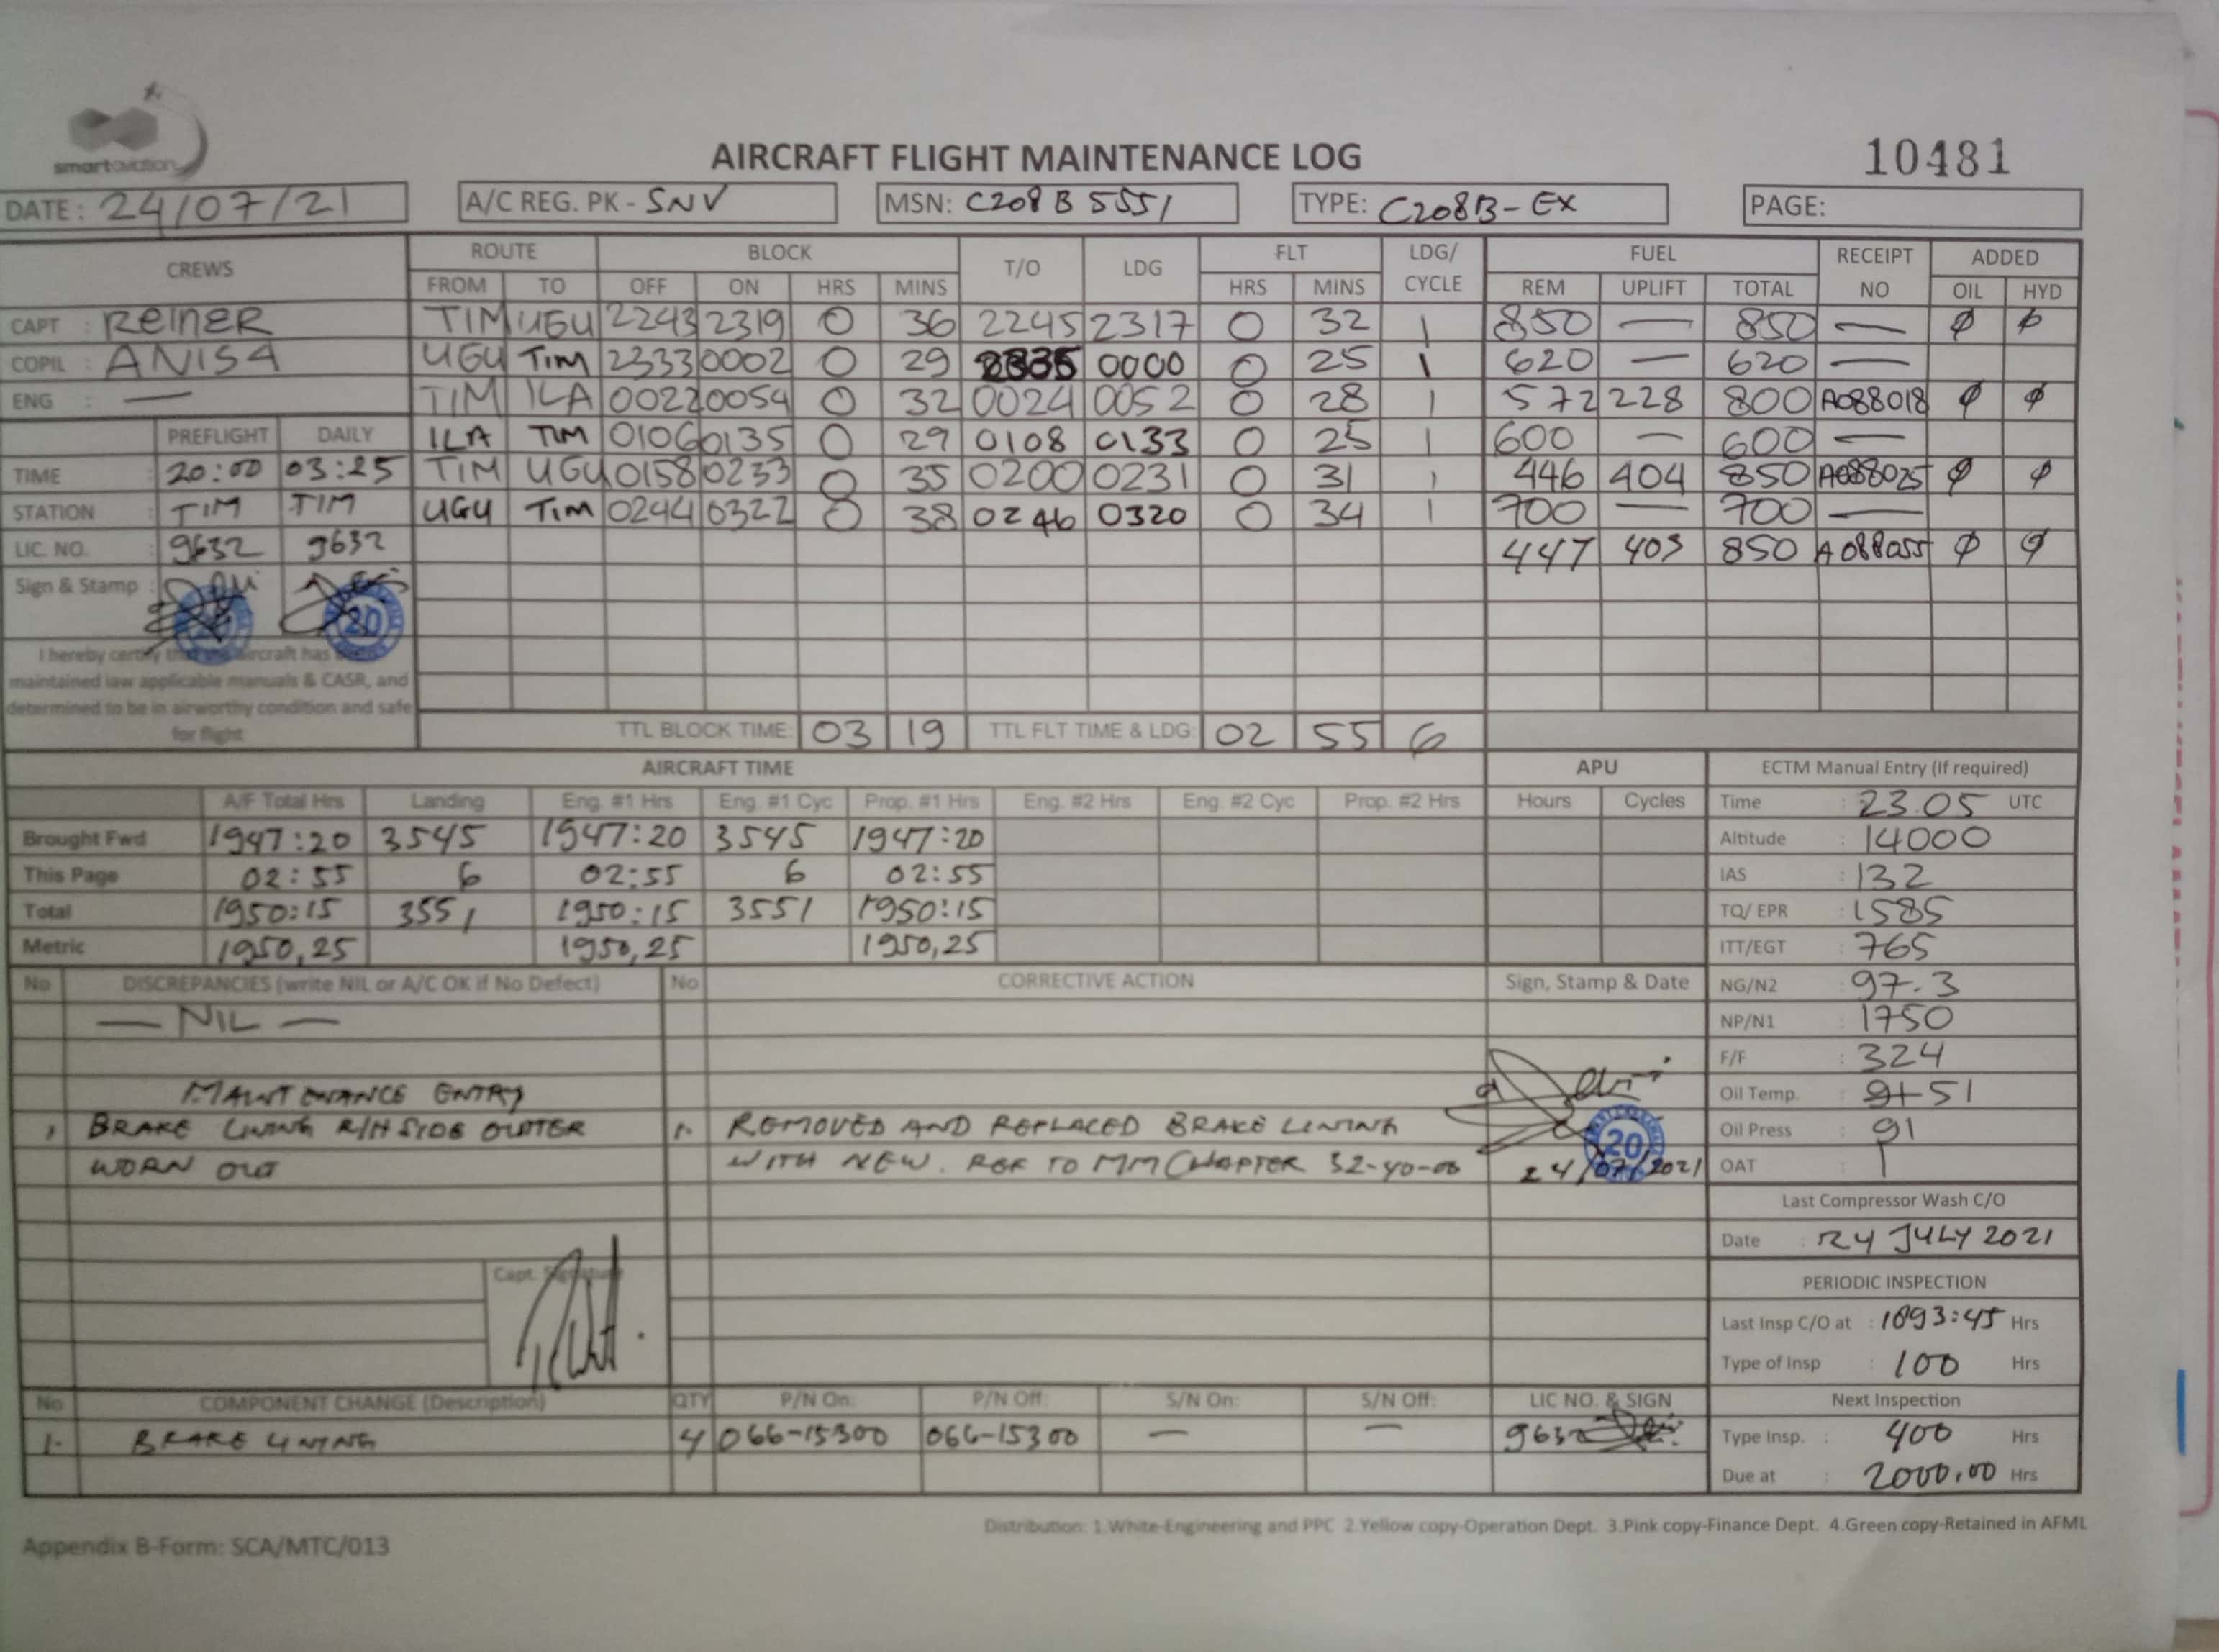 smartaviation
AIRCRAFT FLIGHT MAINTENANCE LOG
10481
DATE: 24/07/21 A/C REG. PK - SNV MSN: C208B5551 TYPE: C208B-EX PAGE:
CREWS ROUTE BLOCK T/O LDG FLT LDG/ CYCLE FUEL RECEIPT NO ADDED
FROM TO OFF ON HRS MINS HRS MINS REM UPLIFT TOTAL OIL HYD
CAPT : REINER TIM UGU 2243 2319 0 36 2245 2317 0 32 1 850 — 850 — ∅ ∅
COPIL : ANISA UGU TIM 2333 0002 0 29 2335 0000 0 25 1 620 — 620 —
ENG : — TIM ILA 0022 0054 0 32 0024 0052 0 28 1 572 228 800 A088018 ∅ ∅
PREFLIGHT DAILY ILA TIM 0106 0135 0 29 0108 0133 0 25 1 600 — 600 —
TIME : 20:00 03:25 TIM UGU 0158 0233 0 35 0200 0231 0 31 1 446 404 850 A088025 ∅ ∅
STATION : TIM TIM UGU TIM 0244 0322 0 38 0246 0320 0 34 1 700 — 700 —
LIC. NO. : 9632 9632 447 403 850 A088055 ∅ ∅
Sign & Stamp :
20
I hereby certify that the aircraft has
maintained law applicable manuals & CASR, and
determined to be in airworthy condition and safe
for flight
TTL BLOCK TIME: 03 19 TTL FLT TIME & LDG: 02 55 6
AIRCRAFT TIME APU ECTM Manual Entry (If required)
A/F Total Hrs Landing Eng. #1 Hrs Eng. #1 Cyc Prop. #1 Hrs Eng. #2 Hrs Eng. #2 Cyc Prop. #2 Hrs Hours Cycles Time : 23.05 UTC
Brought Fwd 1947:20 3545 1947:20 3545 1947:20 Altitude : 14000
This Page 02:55 6 02:55 6 02:55 IAS : 132
Total 1950:15 3551 1950:15 3551 1950:15 TQ/ EPR : 1585
Metric 1950,25 1950,25 1950,25 ITT/EGT : 765
No DISCREPANCIES (write NIL or A/C OK if No Defect) No CORRECTIVE ACTION Sign, Stamp & Date NG/N2 : 97.3
— NIL — NP/N1 : 1750
F/F : 324
MAINTENANCE ENTRY Oil Temp. : 51
1 BRAKE LINING R/H SIDE OUTTER 1. REMOVED AND REPLACED BRAKE LINING 20 Oil Press : 91
WORN OUT WITH NEW. REF TO MM CHAPTER 32-40-00 24/07/2021 OAT : 1
Last Compressor Wash C/O
Date : 24 JULY 2021
Capt. Signature
PERIODIC INSPECTION
Last Insp C/O at : 1893:45 Hrs
Type of Insp : 100 Hrs
No COMPONENT CHANGE (Description) QTY P/N On: P/N Off: S/N On: S/N Off: LIC NO. & SIGN Next Inspection
1. BRAKE LINING 4 066-15300 066-15300 — — 9632 Type Insp. : 400 Hrs
Due at : 2000.00 Hrs
Distribution: 1.White-Engineering and PPC 2.Yellow copy-Operation Dept. 3.Pink copy-Finance Dept. 4.Green copy-Retained in AFML
Appendix B-Form: SCA/MTC/013